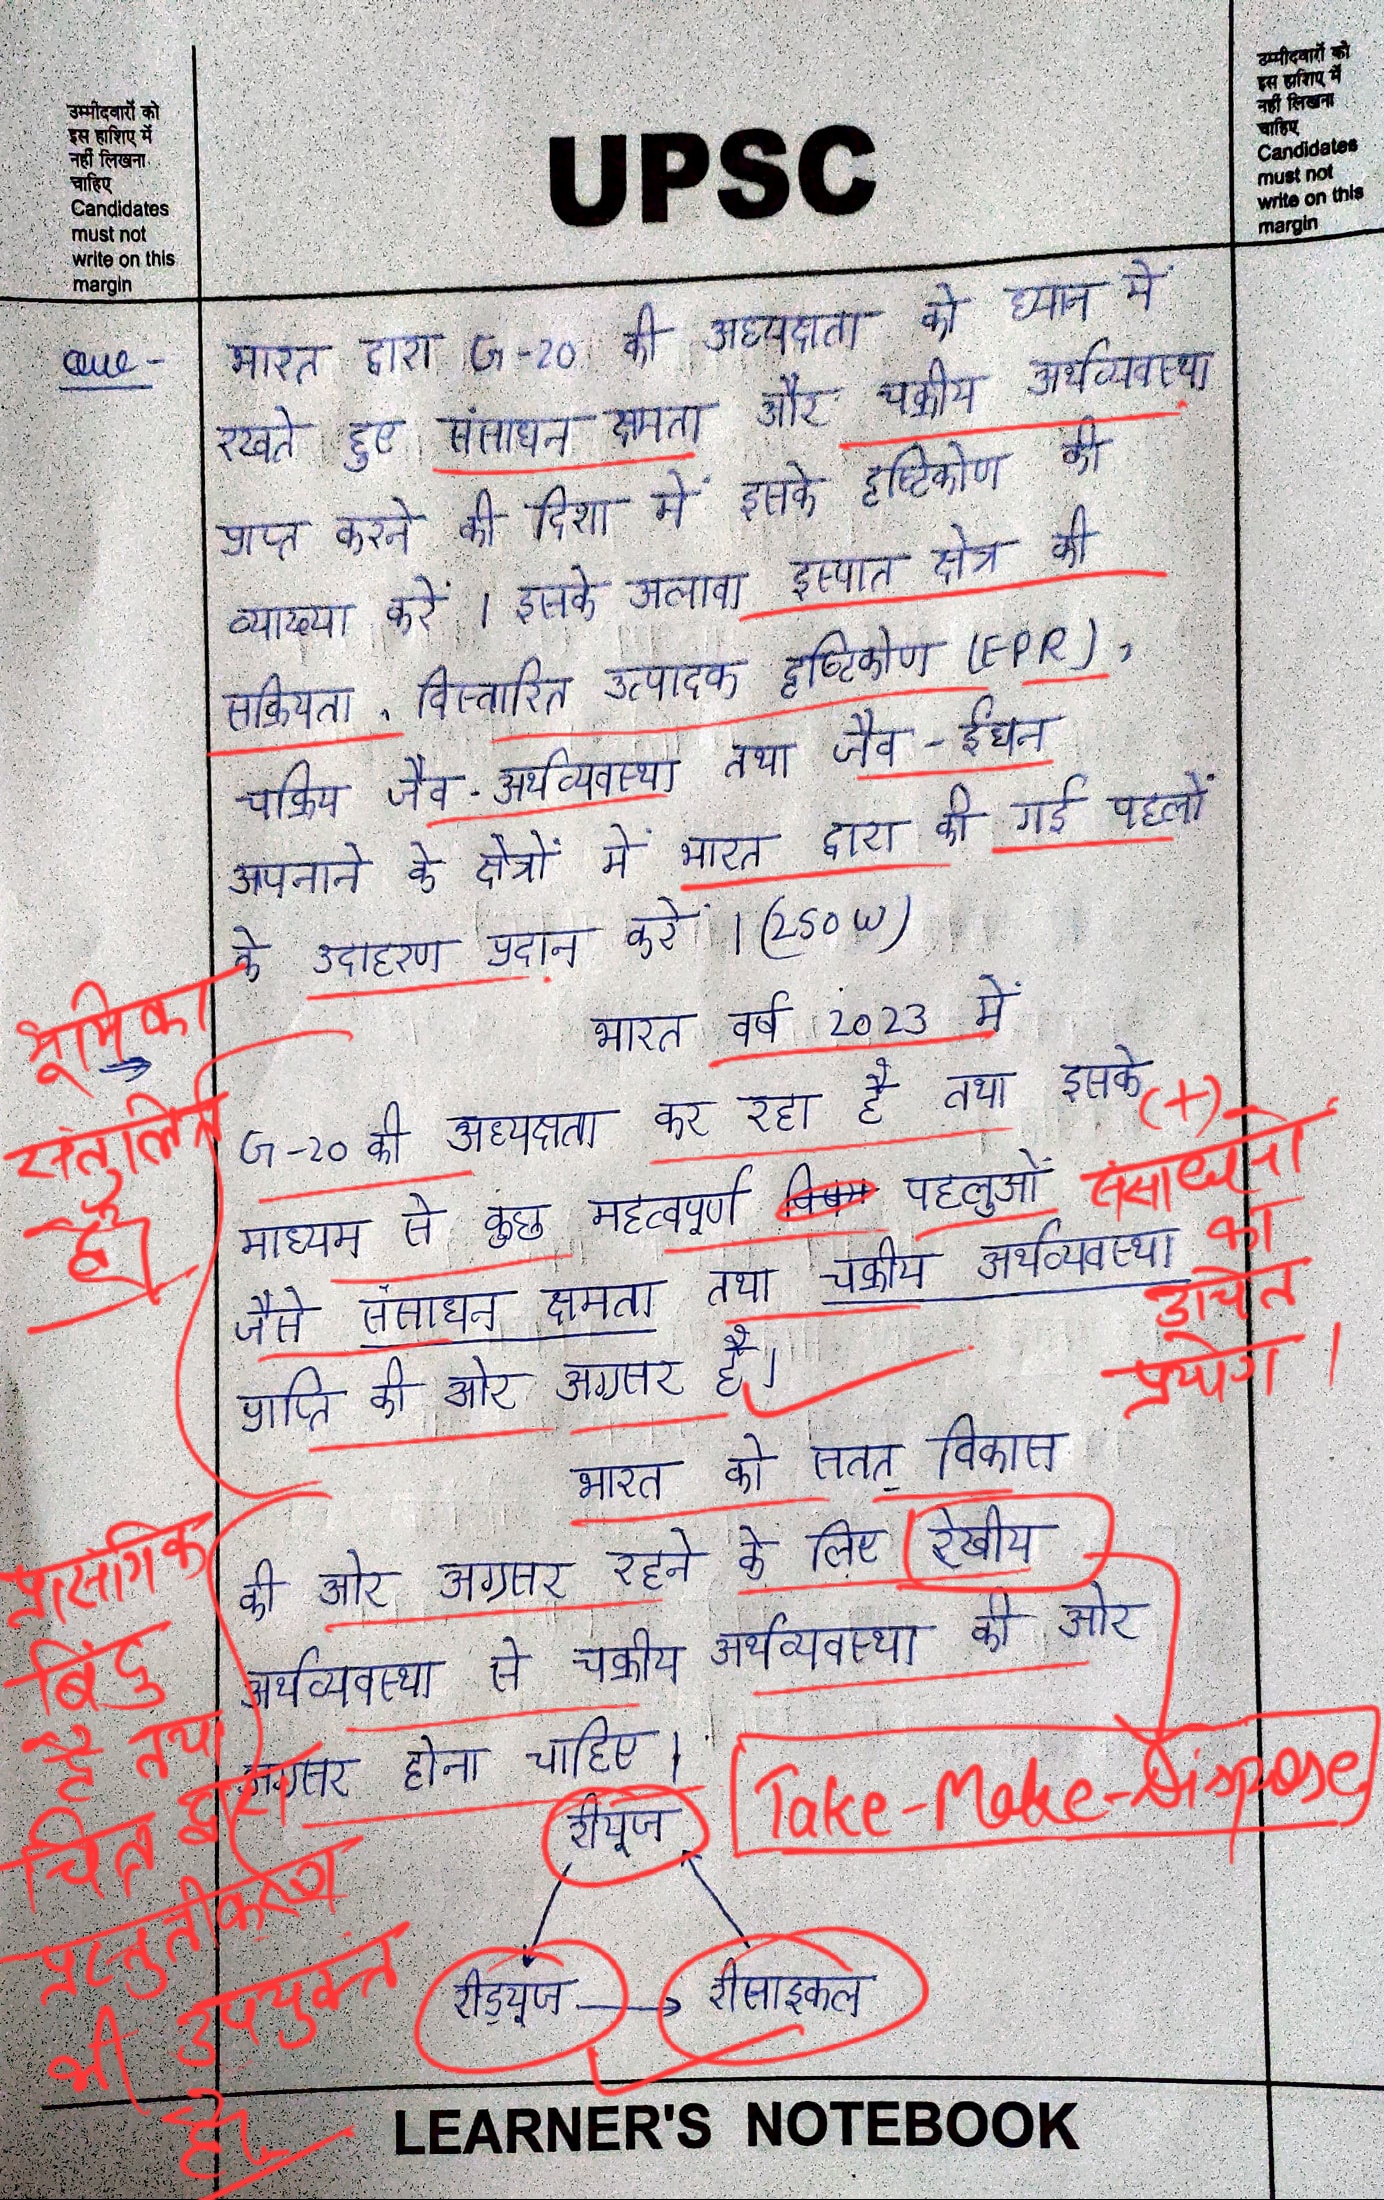 उम्मीदवारों को
इस हाशिए में
नहीं लिखना
चाहिए
Candidates
must not
write on this
margin
UPSC
उम्मीदवारों को
इस हाशिए में
नहीं लिखना
चाहिए
Candidates
must not
write on this
margin
Que - भारत द्वारा G-20 की अध्यक्षता को ध्यान में
रखते हुए संसाधन क्षमता और चक्रीय अर्थव्यवस्था
प्राप्त करने की दिशा में इसके दृष्टिकोण की
व्याख्या करें । इसके अलावा इस्पात क्षेत्र की
सक्रियता , विस्तारित उत्पादक दृष्टिकोण (EPR) ,
चक्रिय जैव - अर्थव्यवस्था तथा जैव - ईंधन
अपनाने के क्षेत्रों में भारत द्वारा की गई पहलों
के उदाहरण प्रदान करें । (250 W)
भूमिका
संतुलित
है।
भारत वर्ष 2023 में
G-20 की अध्यक्षता कर रहा है तथा इसके
माध्यम से कुछ महत्वपूर्ण पहलुओं
जैसे संसाधन क्षमता तथा चक्रीय अर्थव्यवस्था
प्राप्ति की ओर अग्रसर है।
(+)
संसाधनों
का
उचित
प्रयोग ।
भारत को सतत् विकास
की ओर अग्रसर रहने के लिए रेखीय
अर्थव्यवस्था से चक्रीय अर्थव्यवस्था की ओर
अग्रसर होना चाहिए ।
Take-Make-Dispose
प्रासंगिक
बिंदु
है तथा
चित्र द्वारा
प्रस्तुतीकरण
भी उपयुक्त
है।
रीयूज
रीड्यूज
रीसाइकल
LEARNER'S NOTEBOOK